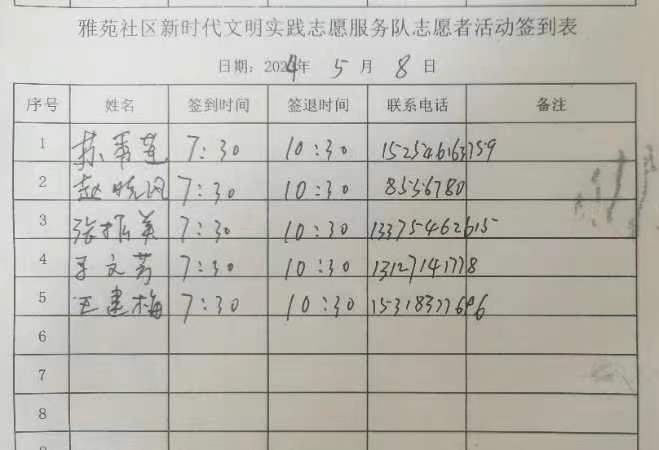 雅苑社区新时代文明实践志愿服务队志愿者活动签到表
日期：2024年 5 月 8 日
序号 姓名 签到时间 签退时间 联系电话 备注
1 苏秀莲 7:30 10:30 15254616759
2 赵晓风 7:30 10:30 8556780
3 张振美 7:30 10:30 13375462615
4 王文芳 7:30 10:30 13127141778
5 王建梅 7:30 10:30 15318377696
6
7
8